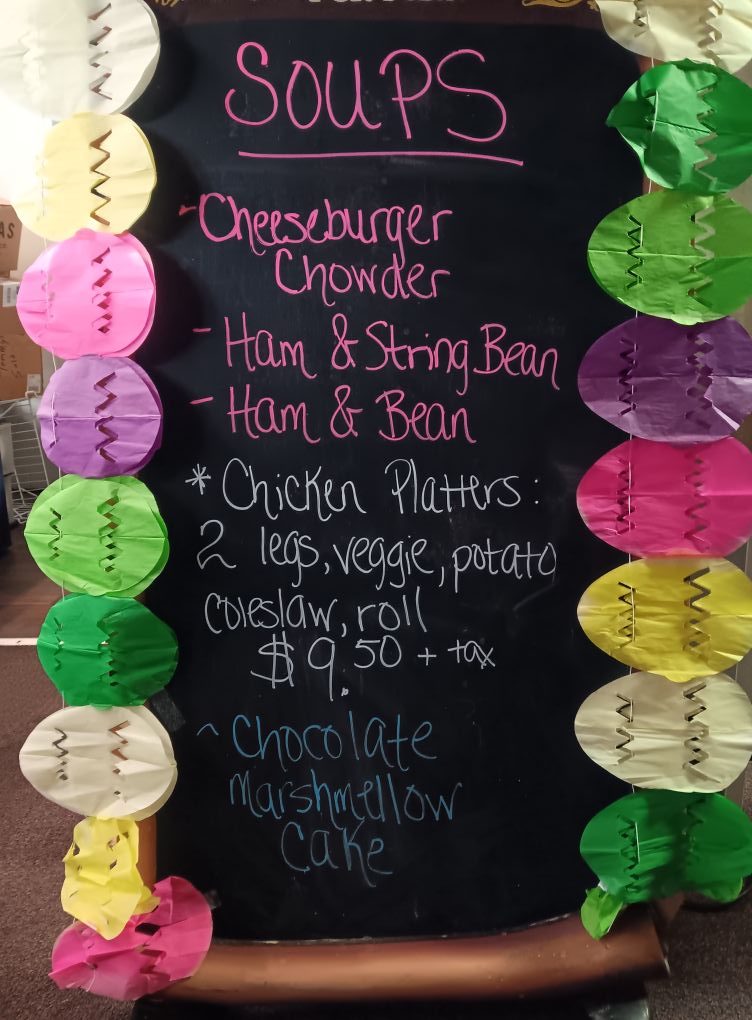 SOUPS
- Cheeseburger
Chowder
- Ham & String Bean
- Ham & Bean
* Chicken Platters:
2 legs, veggie, potato
coleslaw, roll
$9.50 + tax
^ Chocolate
Marshmellow
Cake